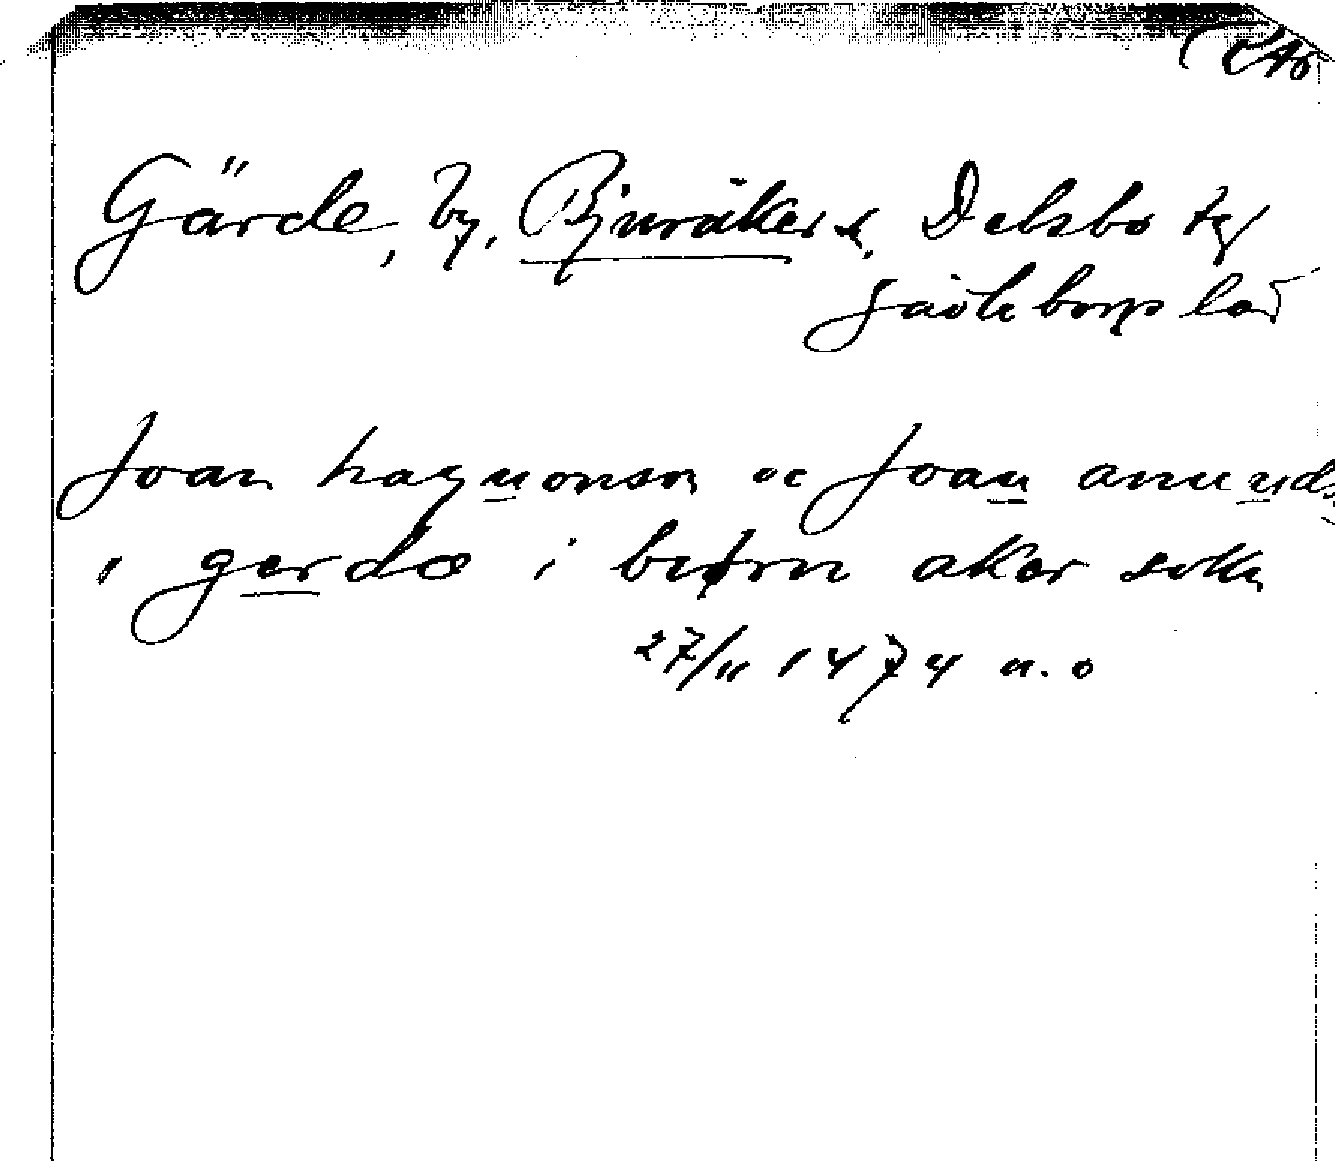 Gärde, by, Bjuråker s, Delsbo tg
Gävleborgs län
Joan haguonson oc Joan amund
i gerdæ i biørn aker sokn
27/11 1474 a. o